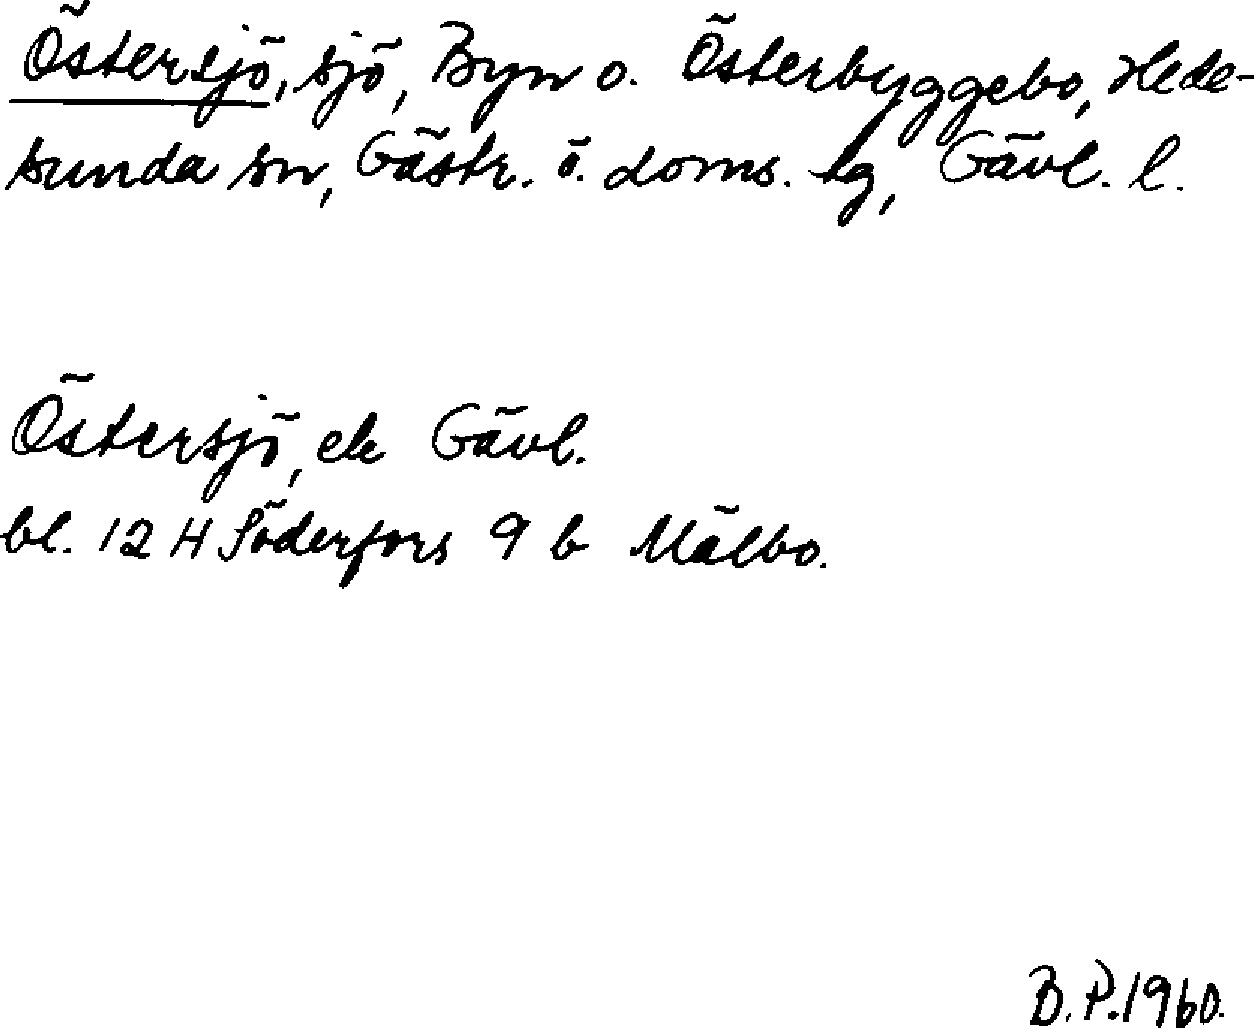 Östersjö, sjö, Byn o. Österbyggebo, Hede-
sunda sn, Gästr. ö. doms. tg, Gävl. l.
Östersjö, ek Gävl.
bl. 12 H Söderfors 9 b Mälbo.
B.P. 1960.